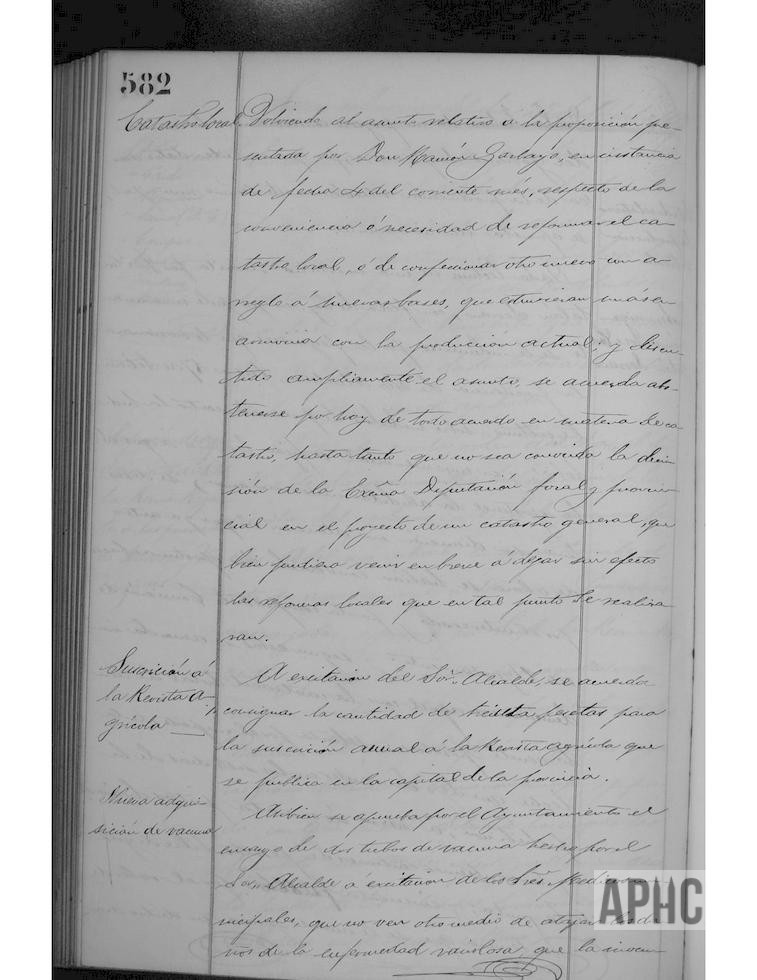 582
Catastro local.
Volviendo al asunto relativo á la proposición pre-
sentada por Don Ramón Garbayo, en instancia
de fecha 4 del corriente més, respecto de la
conveniencia ó necesidad de reformar el ca-
tastro local, ó de confeccionar otro nuevo con a-
rreglo á nuevas bases, que estuvieran más en
armonia con la producción actual; y discu-
tido ampliamente el asunto, se acuerda abs-
tenerse por hoy de todo acuerdo en materia de ca-
tastro, hasta tanto que no sea conocida la deci-
sión de la Excma Diputación foral y provin-
cial en el proyecto de un catastro general, que
bien pudiera venir en breve á dejar sin efecto
las reformas locales que en tal punto se realiza-
ran.
Suscrición á
la Revista A-
grícola
A excitación del Sor. Alcalde, se acuerda
consignar la cantidad de treinta pesetas para
la suscrición anual á la Revista agrícola que
se publica en la capital de la provincia.
Nueva adqui-
sición de vacuna
Asibien se aprueba por el Ayuntamiento el
encargo de dos tubos de vacuna hecho por el
Sor. Alcalde á excitación de los Sres. Médicos mu-
nicipales, que no ven otro medio de atajar los da-
ños de la enfermedad variolosa, que la inocu-
APHC